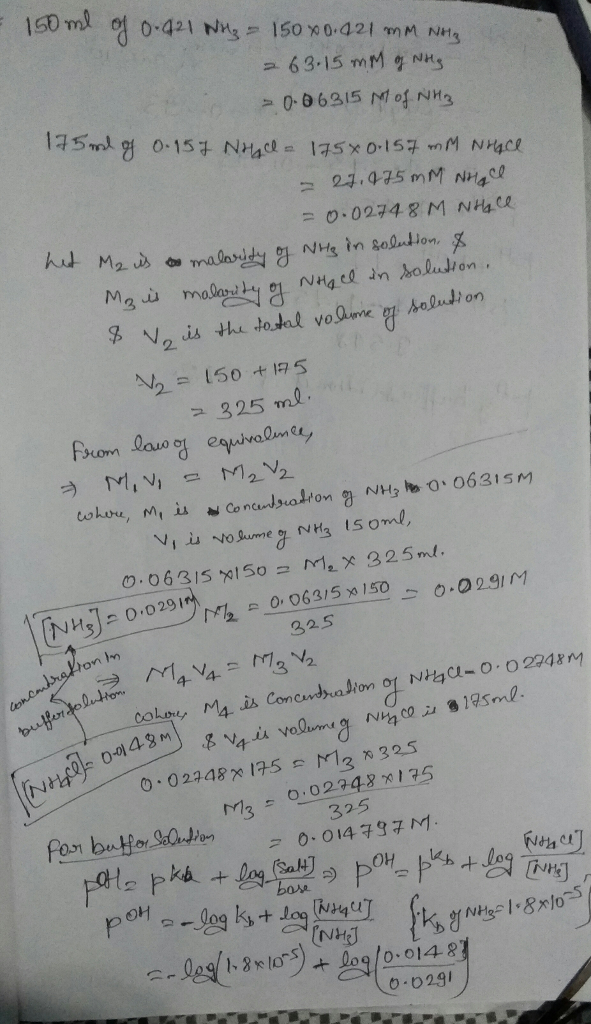 150 ml of 0.421 NH3 = 150 x 0.421 mM NH3
= 63.15 mM of NH3
= 0.06315 M of NH3
175 ml of 0.157 NH4Cl = 175 x 0.157 mM NH4Cl
= 27.475 mM NH4Cl
= 0.02748 M NH4Cl
Let M2 is malarity of NH3 in solution. &
M3 is malarity of NH4Cl in solution.
& V2 is the total volume of solution
V2 = 150 + 175
= 325 ml.
From law of equivalence,
⇒ M1V1 = M2V2
where, M1 is concentration of NH3 0.06315M
V1 is volume of NH3 150ml,
0.06315 x 150 = M2 x 325 ml.
[NH3] = 0.0291M
M2 = 0.06315 x 150 / 325 = 0.0291M
concentration in buffer solution
⇒ M4V4 = M3V2
where, M4 is concentration of NH4Cl = 0.02748M
& V4 is volume of NH4Cl is 175ml.
[NH4Cl] = 0.0148M
0.02748 x 175 = M3 x 325
M3 = 0.02748 x 175 / 325
= 0.014797M.
For buffer solution
pOH = pkb + log [Salt] / base ⇒ pOH = pkb + log [NH4Cl] / [NH3]
pOH = -log kb + log [NH4Cl] / [NH3] {kb of NH3 = 1.8x10^-5}
= -log(1.8x10^-5) + log(0.0148 / 0.0291)